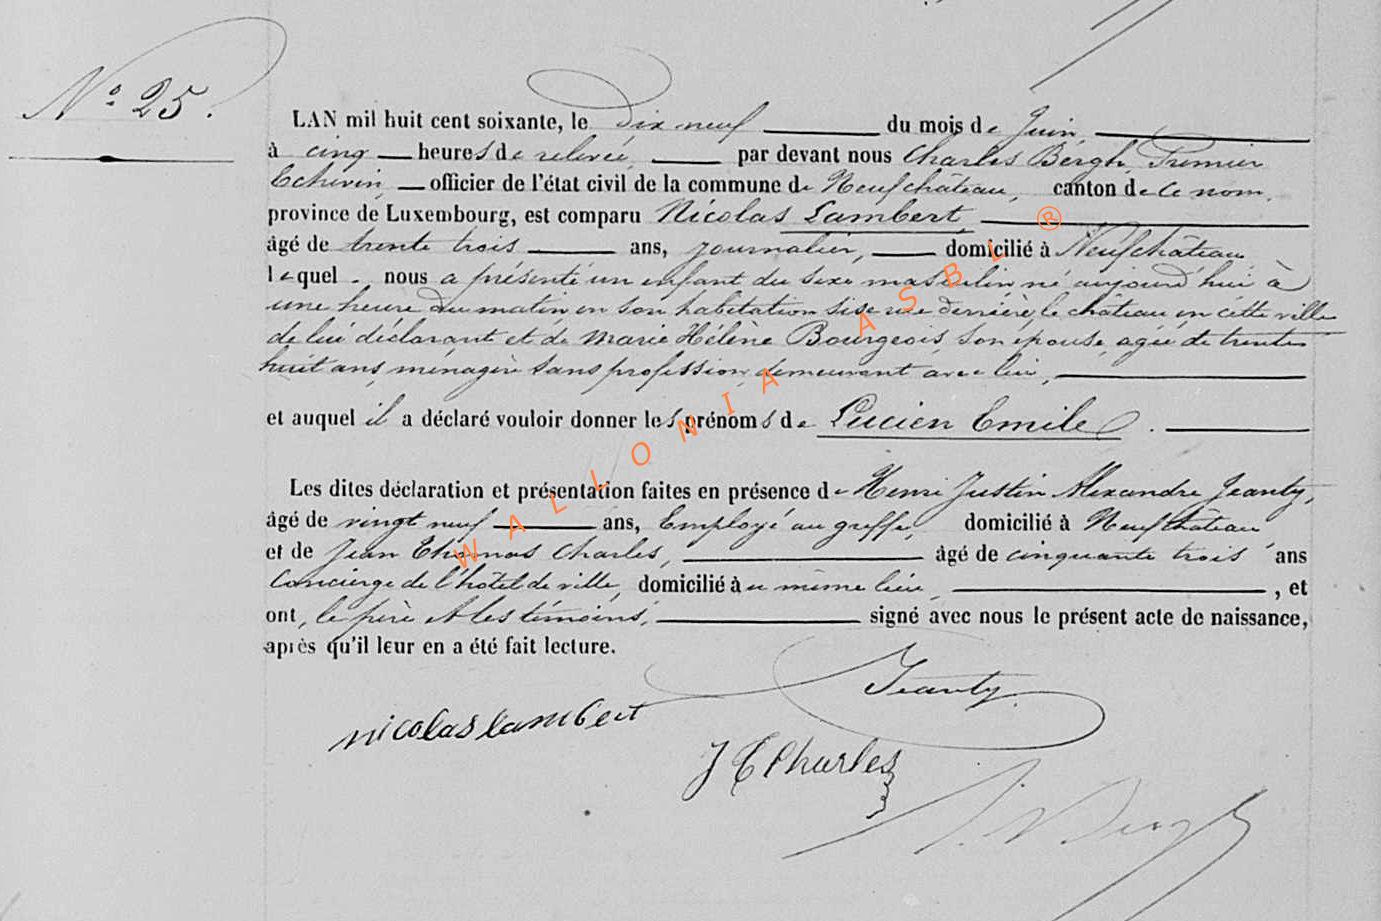 N° 25.
LAN mil huit cent soixante, le dix neuf du mois de Juin
à cinq heures de relevée, par devant nous Charles Bergh, Premier
Echevin, officier de l'état civil de la commune de Neufchâteau, canton de ce nom,
province de Luxembourg, est comparu Nicolas Lambert,
âgé de trente trois ans, journalier, domicilié à Neufchâteau
lequel nous a présenté un enfant du sexe masculin né aujourd'hui à
une heure du matin en son habitation sise rue derrière le château en cette ville
de lui déclarant et de Marie Hélène Bourgeois, son épouse, agée de trente
huit ans, ménagère sans profession, demeurant avec lui,
et auquel il a déclaré vouloir donner les prénoms de Lucien Emile.
Les dites déclaration et présentation faites en présence de Henri Justin Alexandre Jeanty,
âgé de vingt neuf ans, Employé au greffe, domicilié à Neufchâteau
et de Jean Thomas Charles, âgé de cinquante trois ans
Concierge de l'hôtel de ville, domicilié au même lieu, , et
ont, le père et les témoins, signé avec nous le présent acte de naissance,
après qu'il leur en a été fait lecture.
Jeanty
nicolas lambert
J T Charles
Bergh
WALLONIA ASBL ®